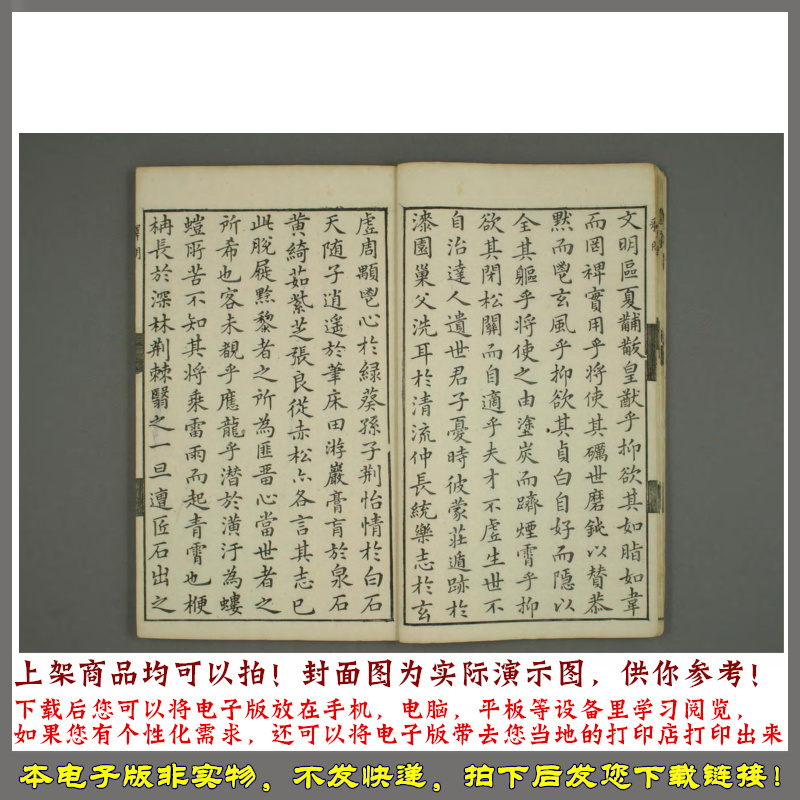 文明區夏黼黻皇猷乎抑欲其如脂如韋
而罔裨實用乎將使其礪世磨鈍以贊恭
默而鬯玄風乎抑欲其貞白自好而隱以
全其軀乎將使之由塗炭而躋煙霄乎抑
欲其閉松關而自適乎夫才不虛生世不
自治達人遺世君子憂時彼蒙莊遁跡於
漆園巢父洗耳於清流仲長統樂志於玄
虛周顒鬯心於綠葵孫子荆怡情於白石
天随子逍遥於筆床田游巖膏肓於泉石
黄綺茹紫芝張良從赤松亦各言其志已
此脫屣黔黎者之所為匪晋心當世者之
所希也客未覩乎應龍乎潜於潢汙為螻
螘所苦不知其將乘雷雨而起青霄也梗
柟長於深林荆棘翳之一旦遭匠石出之
上架商品均可以拍！封面图为实际演示图，供你参考！
下载后您可以将电子版放在手机，电脑，平板等设备里学习阅览，
如果您有个性化需求，还可以将电子版带去您当地的打印店打印出来
本电子版非实物，不发快递，拍下后发您下载链接！